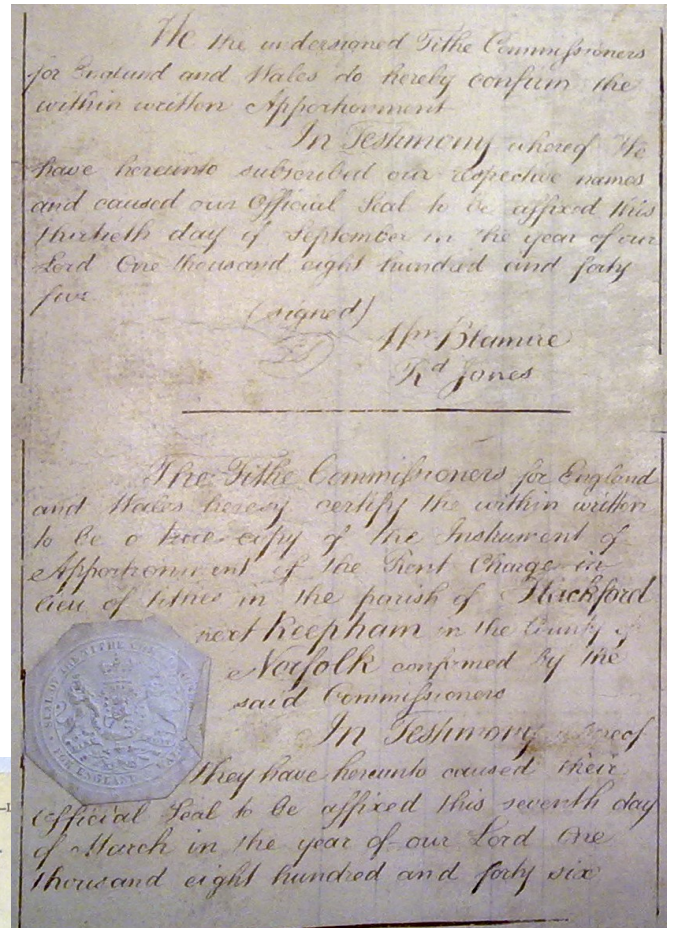 We the undersigned Tithe Commissioners
for England and Wales do hereby confirm the
within written Apportionment
In Testimony whereof We
have hereunto subscribed our respective names
and caused our Official Seal to be affixed this
thirtieth day of September in the year of our
Lord One thousand eight hundred and forty
five
(signed)
Wm Blamire
Rd Jones
The Tithe Commissioners for England
and Wales hereby certify the within written
to be a true copy of the Instrument of
Apportionment of the Rent Charge in
lieu of tithes in the parish of Hackford
next Reepham in the County of
Norfolk confirmed by the
said Commissioners
In Testimony whereof
they have hereunto caused their
Official Seal to be affixed this seventh day
of March in the year of our Lord One
thousand eight hundred and forty six
SEAL OF THE TITHE
FOR ENGLAND